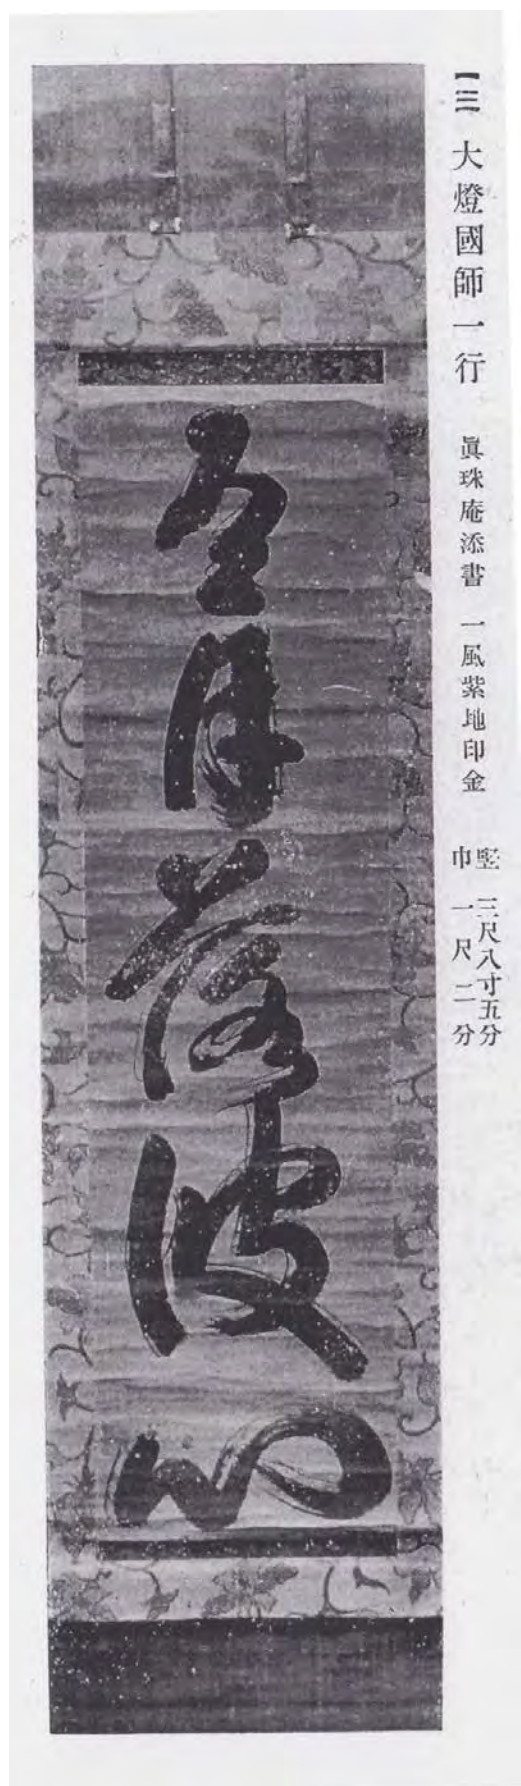 一三 大燈國師一行 眞珠庵添書 一風紫地印金
竪 三尺八寸五分
巾 一尺二分
月落波心